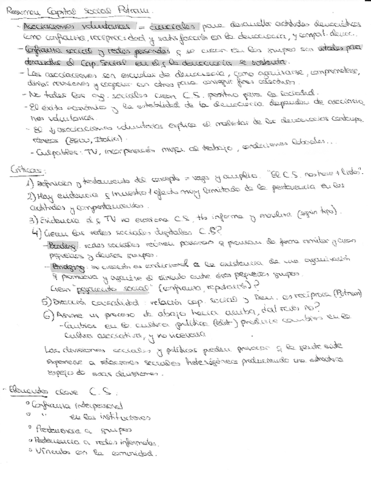 Resumen Capital Social Putnam.
- Asociaciones voluntarias = esenciales para desarrollar actitudes democráticas como confianza, reciprocidad y satisfacción en la democracia, y
- Confianza social y redes personales q se crean en los grupos son vitales para desarrollar el Cap. Social en el q la democracia se sustenta.
- Las asociaciones son escuelas de democracia, como organizarse, comprometerse, dirigir reuniones y cooperar con otros para conseguir fines colectivos
- No todas las org. sociales crean C.S. positivo para la sociedad.
- El éxito económico y la estabilidad de la democracia dependen de asociaciones voluntarias
- El asociacionismo voluntario explica el malestar de las democracias contemporáneas (EEUU, Italia)
- Culpables: TV, incorporación mujer al trabajo, laborales...
Críticas:
1) Definición y del concepto = vaga y amplia. "El C.S.
2) Hay evidencia q muestra el efecto muy limitado de la pertenencia en las actitudes y comportamientos.
3) Evidencia q la TV no erosiona C.S. Ha informa y moviliza (según tipo).
4) Crean las redes sociales digitales C.S?
- redes sociales reúnen personas q piensan de forma similar y crean pequeños y grupos
- Bridging = condicional a la existencia de una organización q promueva y entre otros pequeños grupos
Crean "pegamento social" (confianza reputación)?
5) Dirección causalidad relación cap. social y Dem. es recíproca (Putnam)
6) Asume un proceso de abajo hacia arriba, ¿tal cual no?
- Cambios en la cultura política produce cambios en la cultura asociativa, y no viceversa
Las divisiones sociales y políticas pueden provocar q la gente evite exponerse a relaciones sociales heterogéneas produciendo una estructura espejo de esas divisiones.
- Elementos clave C.S.
° Confianza interpersonal
° " en las instituciones
° Pertenencia a grupos
° Pertenencia a redes informales.
° Vínculos con la comunidad.